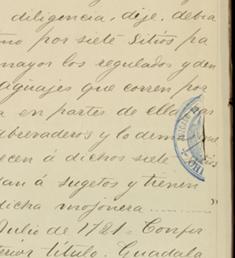 diligencia, dije, debia
mo por siete Sitios pa
mayor los regulados y den
aginajes que corren por
a en partes de ella
abreraderos y lo dem
cen á dichos siete
dan á sugetos y tienen
dicha mojonera
Julio de 1721. Confir
erior título. Guadala